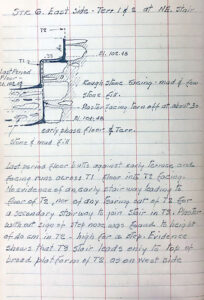 STR 6. East Side - Terr. 1 & 2 at NE. Stair
T2
Last Period
Floor
El. 102.48
T1
Rough Stone facing - mud & few
Stone fill.
Plaster facing torn off at about 30
El. 102.18
early phase floor & Terr.
Stone & mud fill
Last period floor butts against early terrace, and
facing runs across T1 floor into T2 facing.
No evidence of an early stair way leading to
floor of T2, nor of day tearing out of T2 for
a secondary stairway to join Stair in T3. Plaster
without sign of step nose was found to height
of 40 cm in T2 - high for a step. Evidence
shows that T3 Stair leads only to top of
broad platform of T2 as on west side